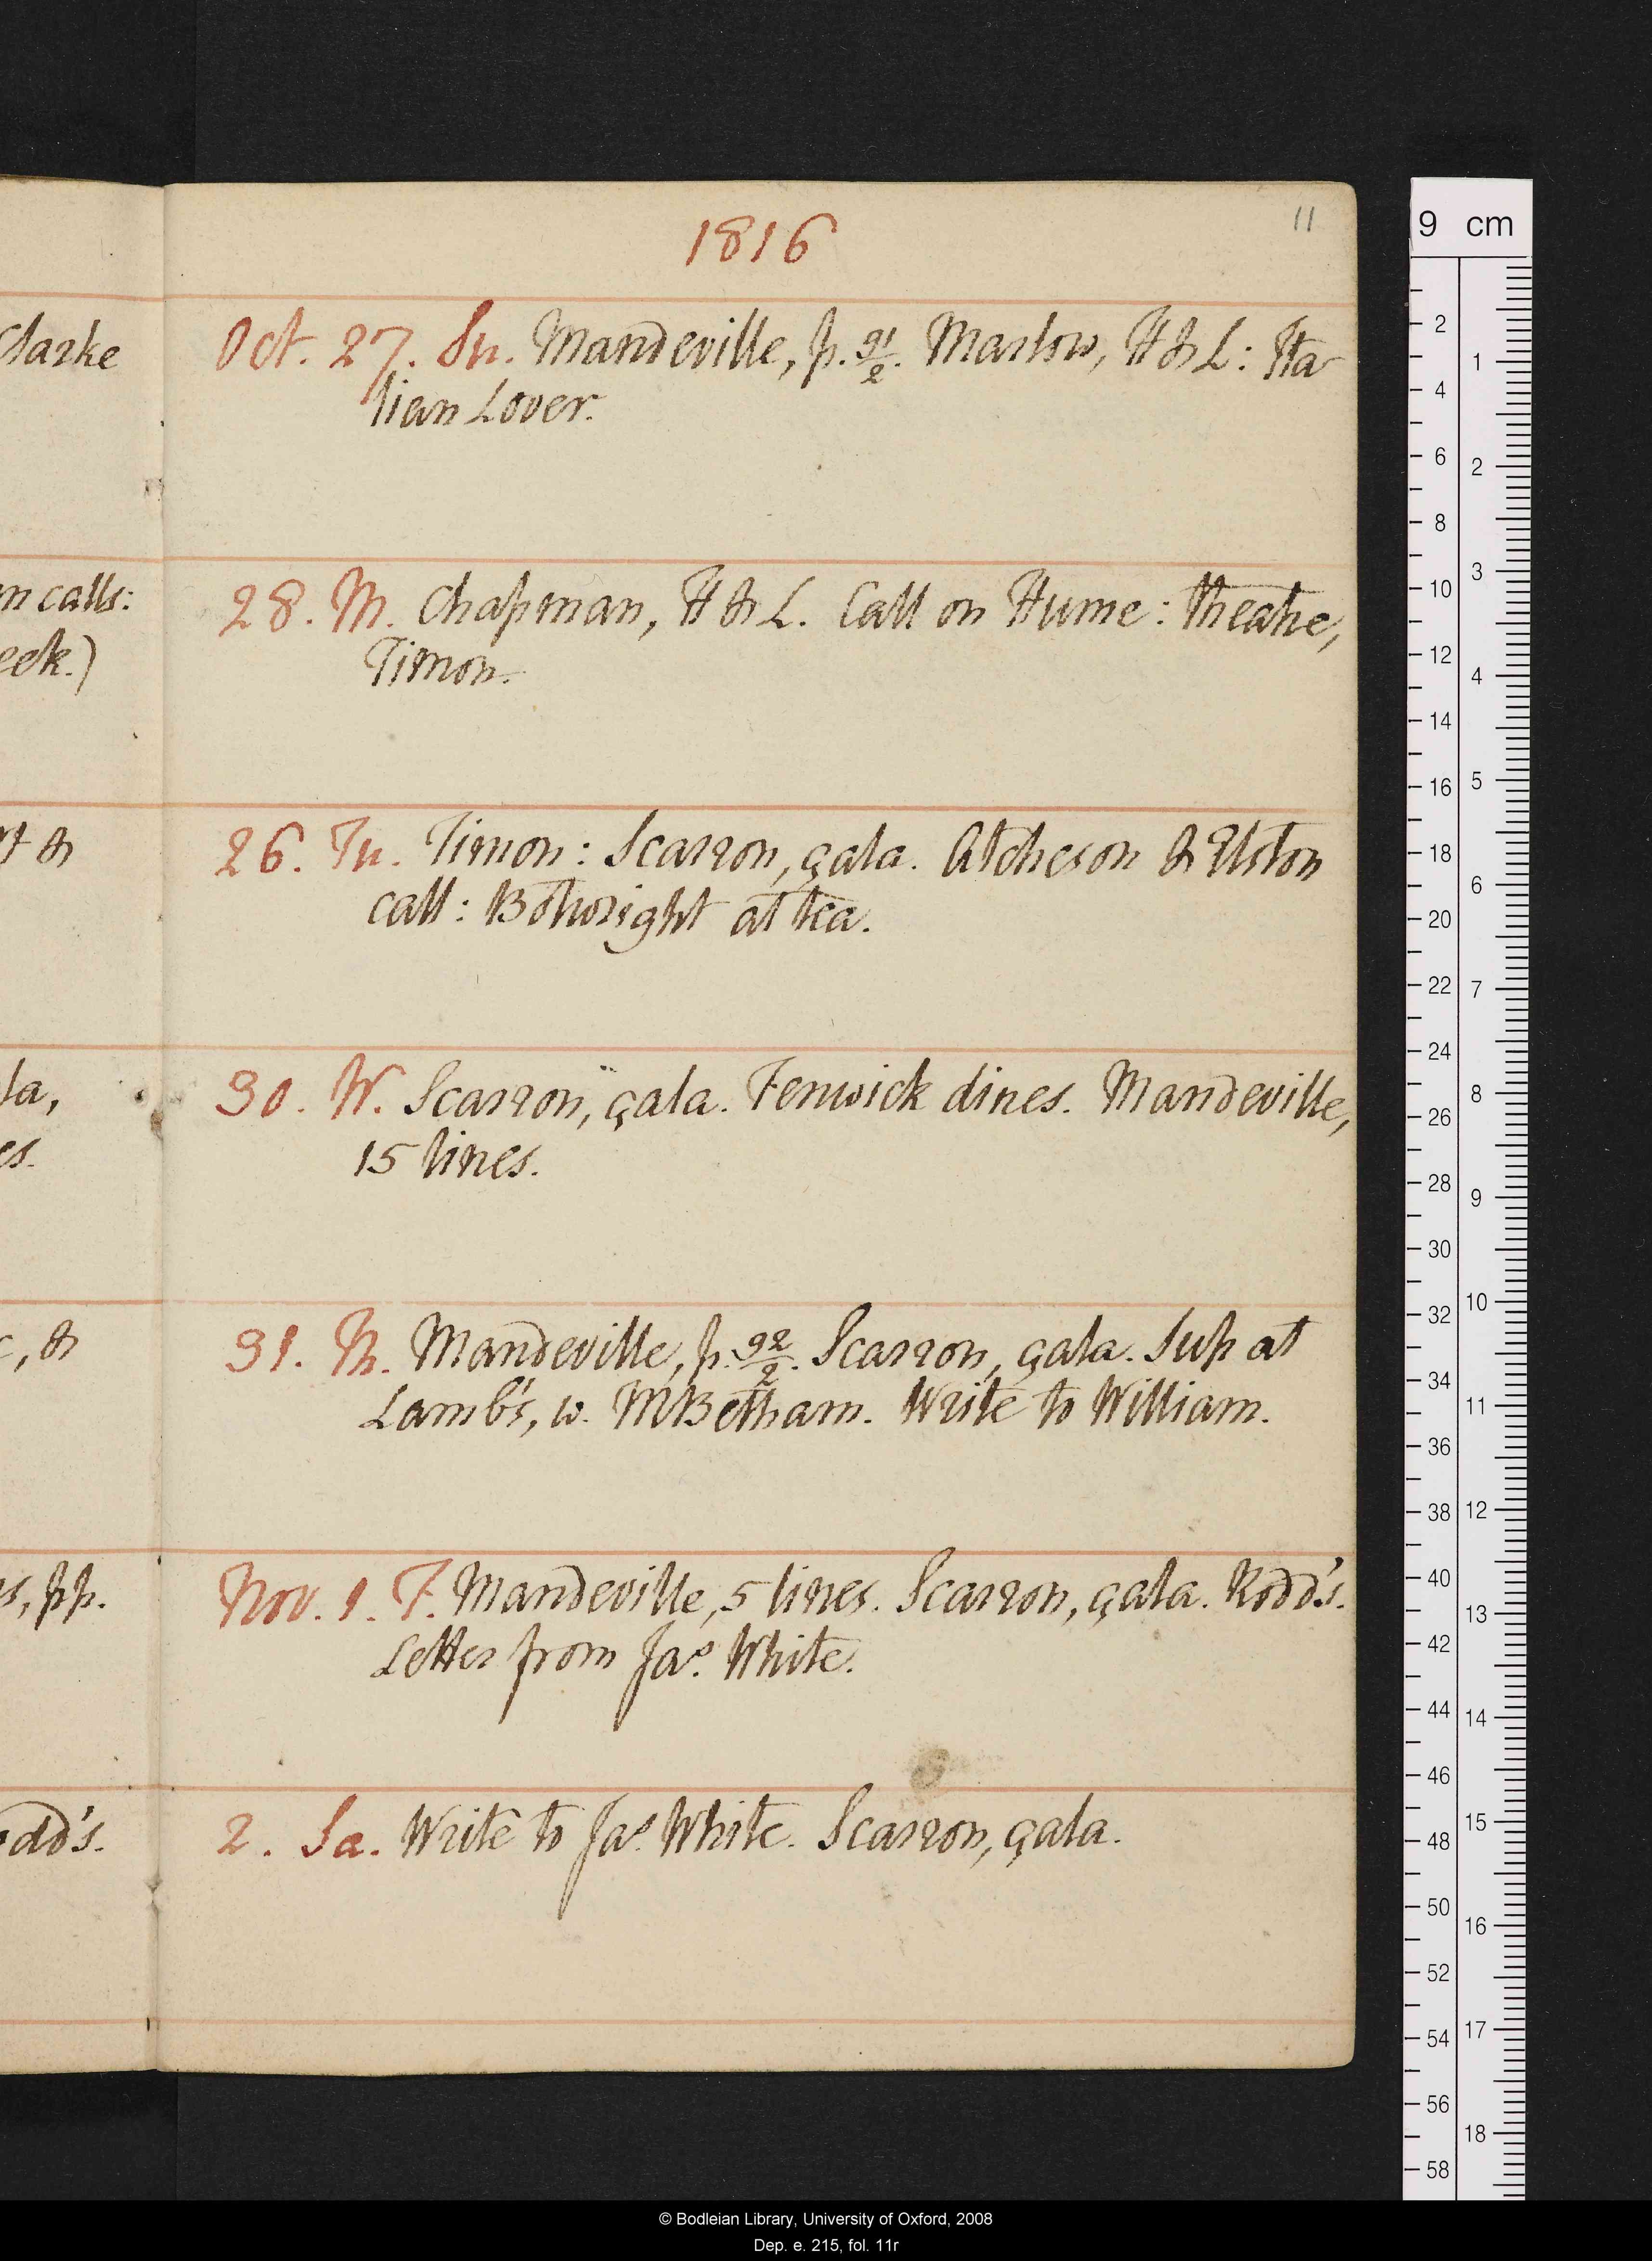 1816
11
Clarke
Oct. 27. Su. Mandeville, p. 31/2. Marlow, H & L: Ita-
lian Lover.
n calls:
eek.)
28. M. Chapman, H & L. Call on Hume: theatre,
Timon.
&
26. Tu. Timon: Scarron, çala. Atcheson & Elston
call: Bothwright at tea.
la,
es.
30. W. Scarron, çala. Fenwick dines. Mandeville,
15 lines.
, &
31. Th. Mandeville, p. 32/2. Scarron, çala. Sup at
Lamb's, w. M Betham. Write to William.
s, pp.
Nov. 1. F. Mandeville, 5 lines. Scarron, çala. Rodd's.
Letter from Jas. White.
odd's.
2. Sa. Write to Jas. White. Scarron, çala.
9 cm
2
4
6
8
10
12
14
16
18
20
22
24
26
28
30
32
34
36
38
40
42
44
46
48
50
52
54
56
58
1
2
3
4
5
6
7
8
9
10
11
12
13
14
15
16
17
18
© Bodleian Library, University of Oxford, 2008
Dep. e. 215, fol. 11r